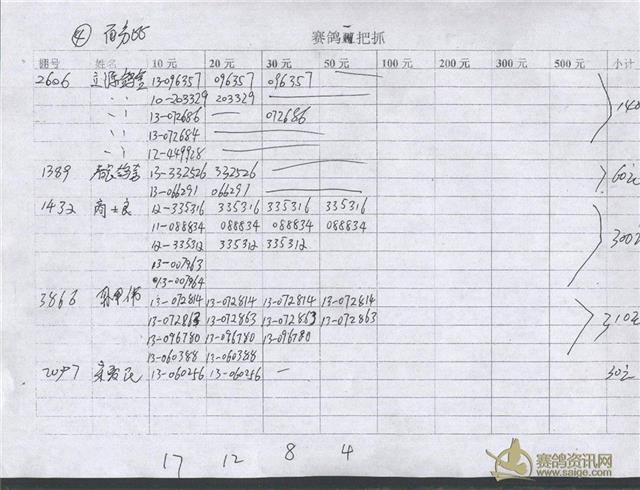 ④ 百
赛鸽 把抓
棚号 姓名 10 元 20 元 30 元 50 元 100 元 200 元 300 元 500 元 小计
2606 13-096357 096357 096357
〃 10-203329 203329 140
〃 13-072686 — 072686
〃 13-072684
〃 12-449928
1389 13-332526 332526 60元
13-066291 066291
1432 商士良 12-335316 335316 335316 335316
11-088834 088834 088834 088834
12-335312 335312 335312 300元
13-007963
13-007964
3866 13-072814 13-072814 13-072814 13-072814
13-072863 13-072863 13-072863 13-072863 310元
13-096780 13-096780 13-096780
13-060388 13-060388
2097 13-060256 13-060256 — 30元
17 12 8 4
赛鸽资讯网
www.saige.com